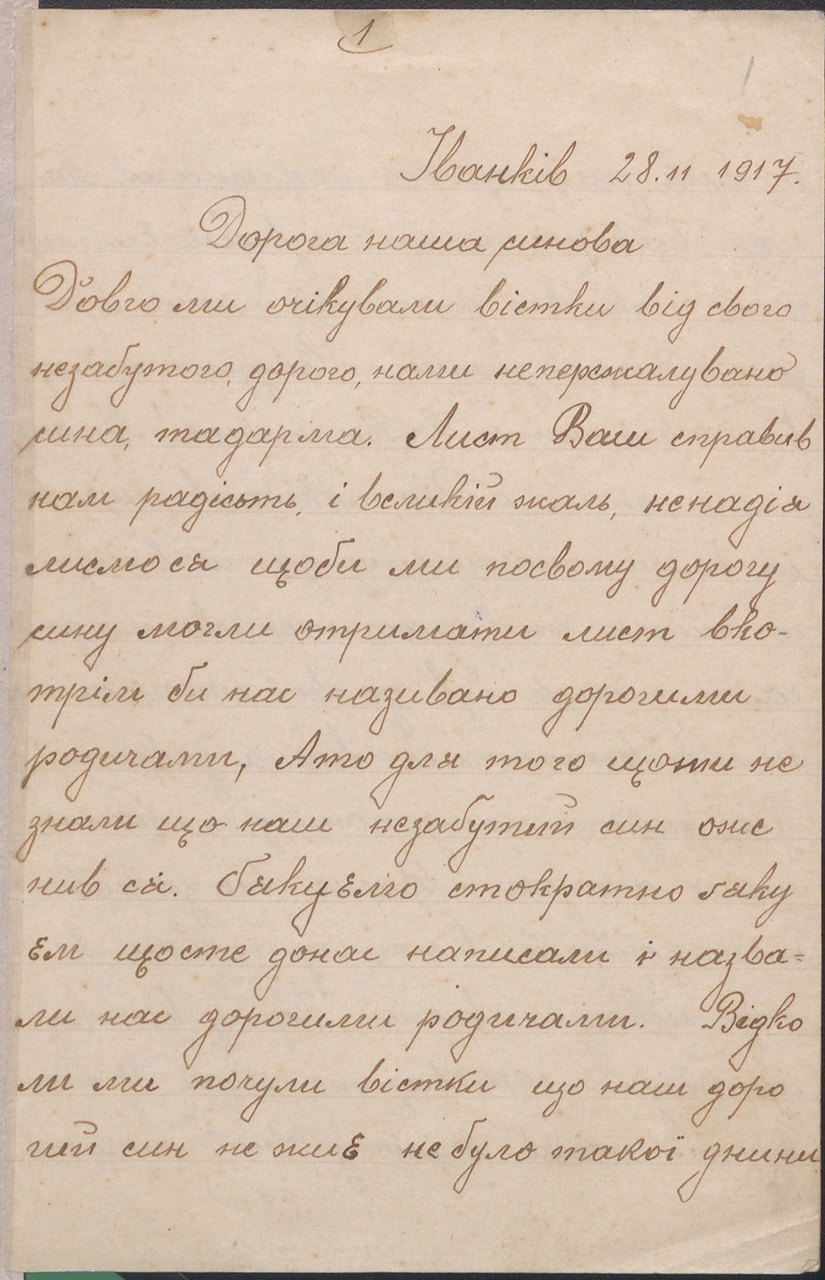 1
Іванків 28.11 1917.
Дорога наша синова
Довго ми очікували вістки від свого
незабутого, дорого, нами непережалувано
сина, тадарма. Лист Ваш справив
нам радість, і великій жаль, ненадія
лисмося щоби ми посвому дорогу
сину могли отримати лист вко-
трім би нас називано дорогими
родичами, Ато для того щоми не
знали що наш незабутий син оже
нив ся. Дякуємо стократно дяку
єм щосте донас написали і назва=
ли нас дорогими родичами. Відко
ли ми почули вістки що наш доро
гий син не жиє не було такої днини